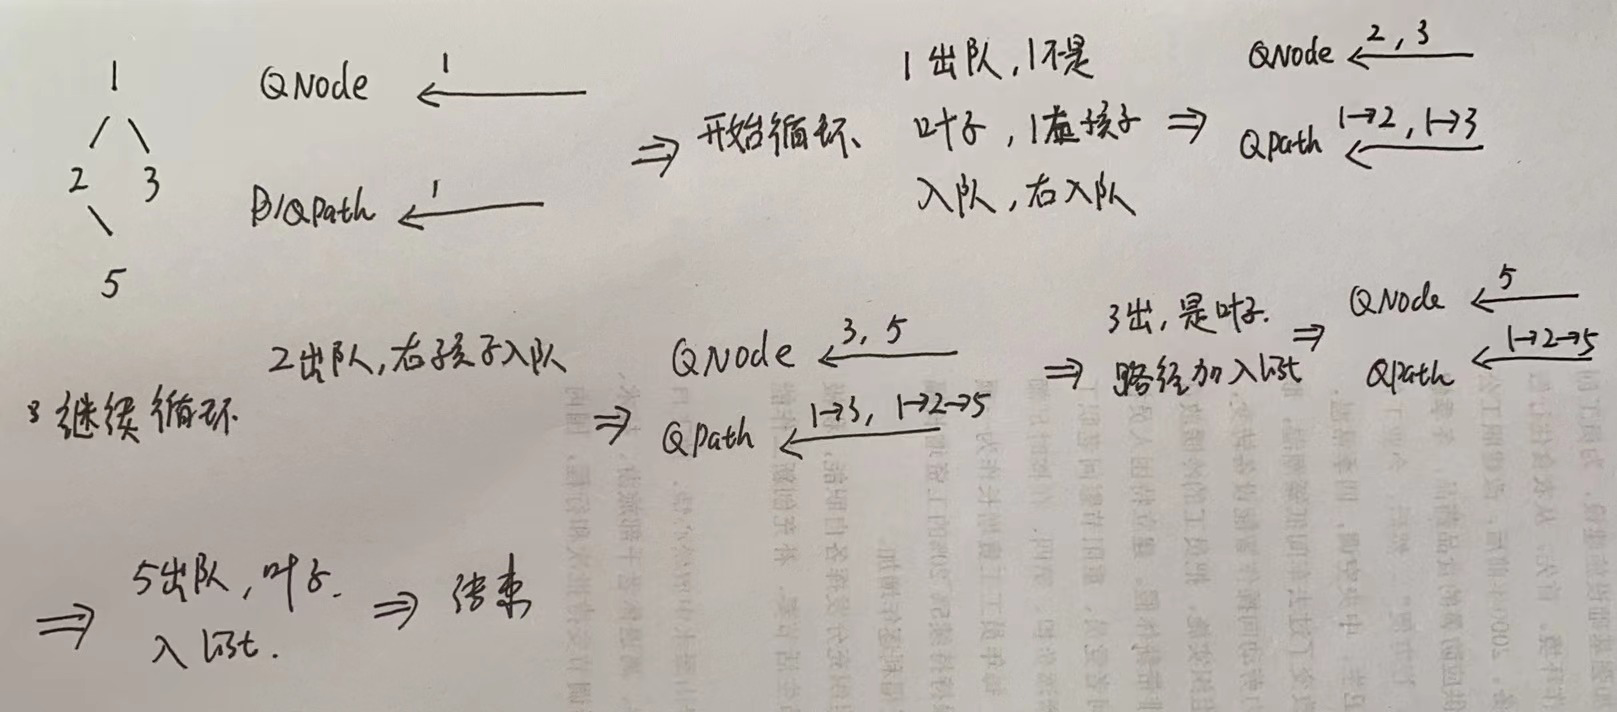 1
2 3
5
QNode 1
QPath 1
⇒ 开始循环、
1出队,1不是
叶子,1左孩子
入队,右入队
⇒
QNode 2,3
QPath 1→2,1→3
继续循环
2出队,右孩子入队
⇒
QNode 3,5
QPath 1→3,1→2→5
⇒
3出,是叶子.
路径加入list
⇒
QNode 5
QPath 1→2→5
⇒
5出队,叶子.
入list.
⇒ 结束